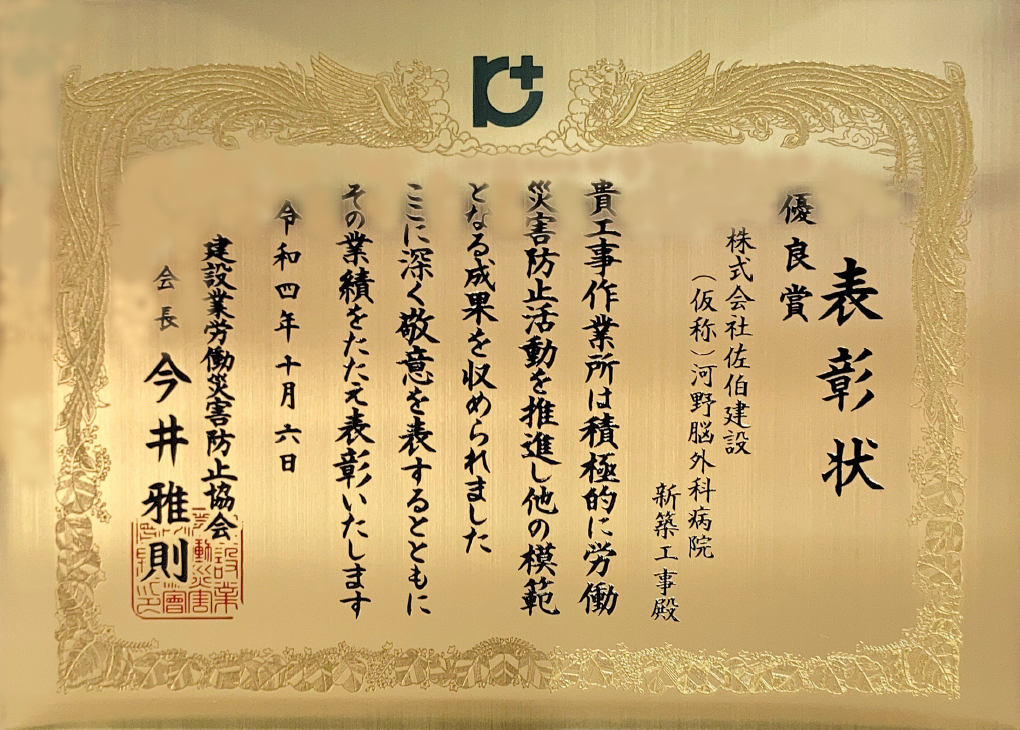 表彰状
優良賞
株式会社佐伯建設
（仮称）河野脳外科病院
新築工事殿
貴工事作業所は積極的に労働
災害防止活動を推進し他の模範
となる成果を収められました
ここに深く敬意を表するとともに
その業績をたたえ表彰いたします
令和四年十月六日
建設業労働災害防止協会
会長 今井雅則